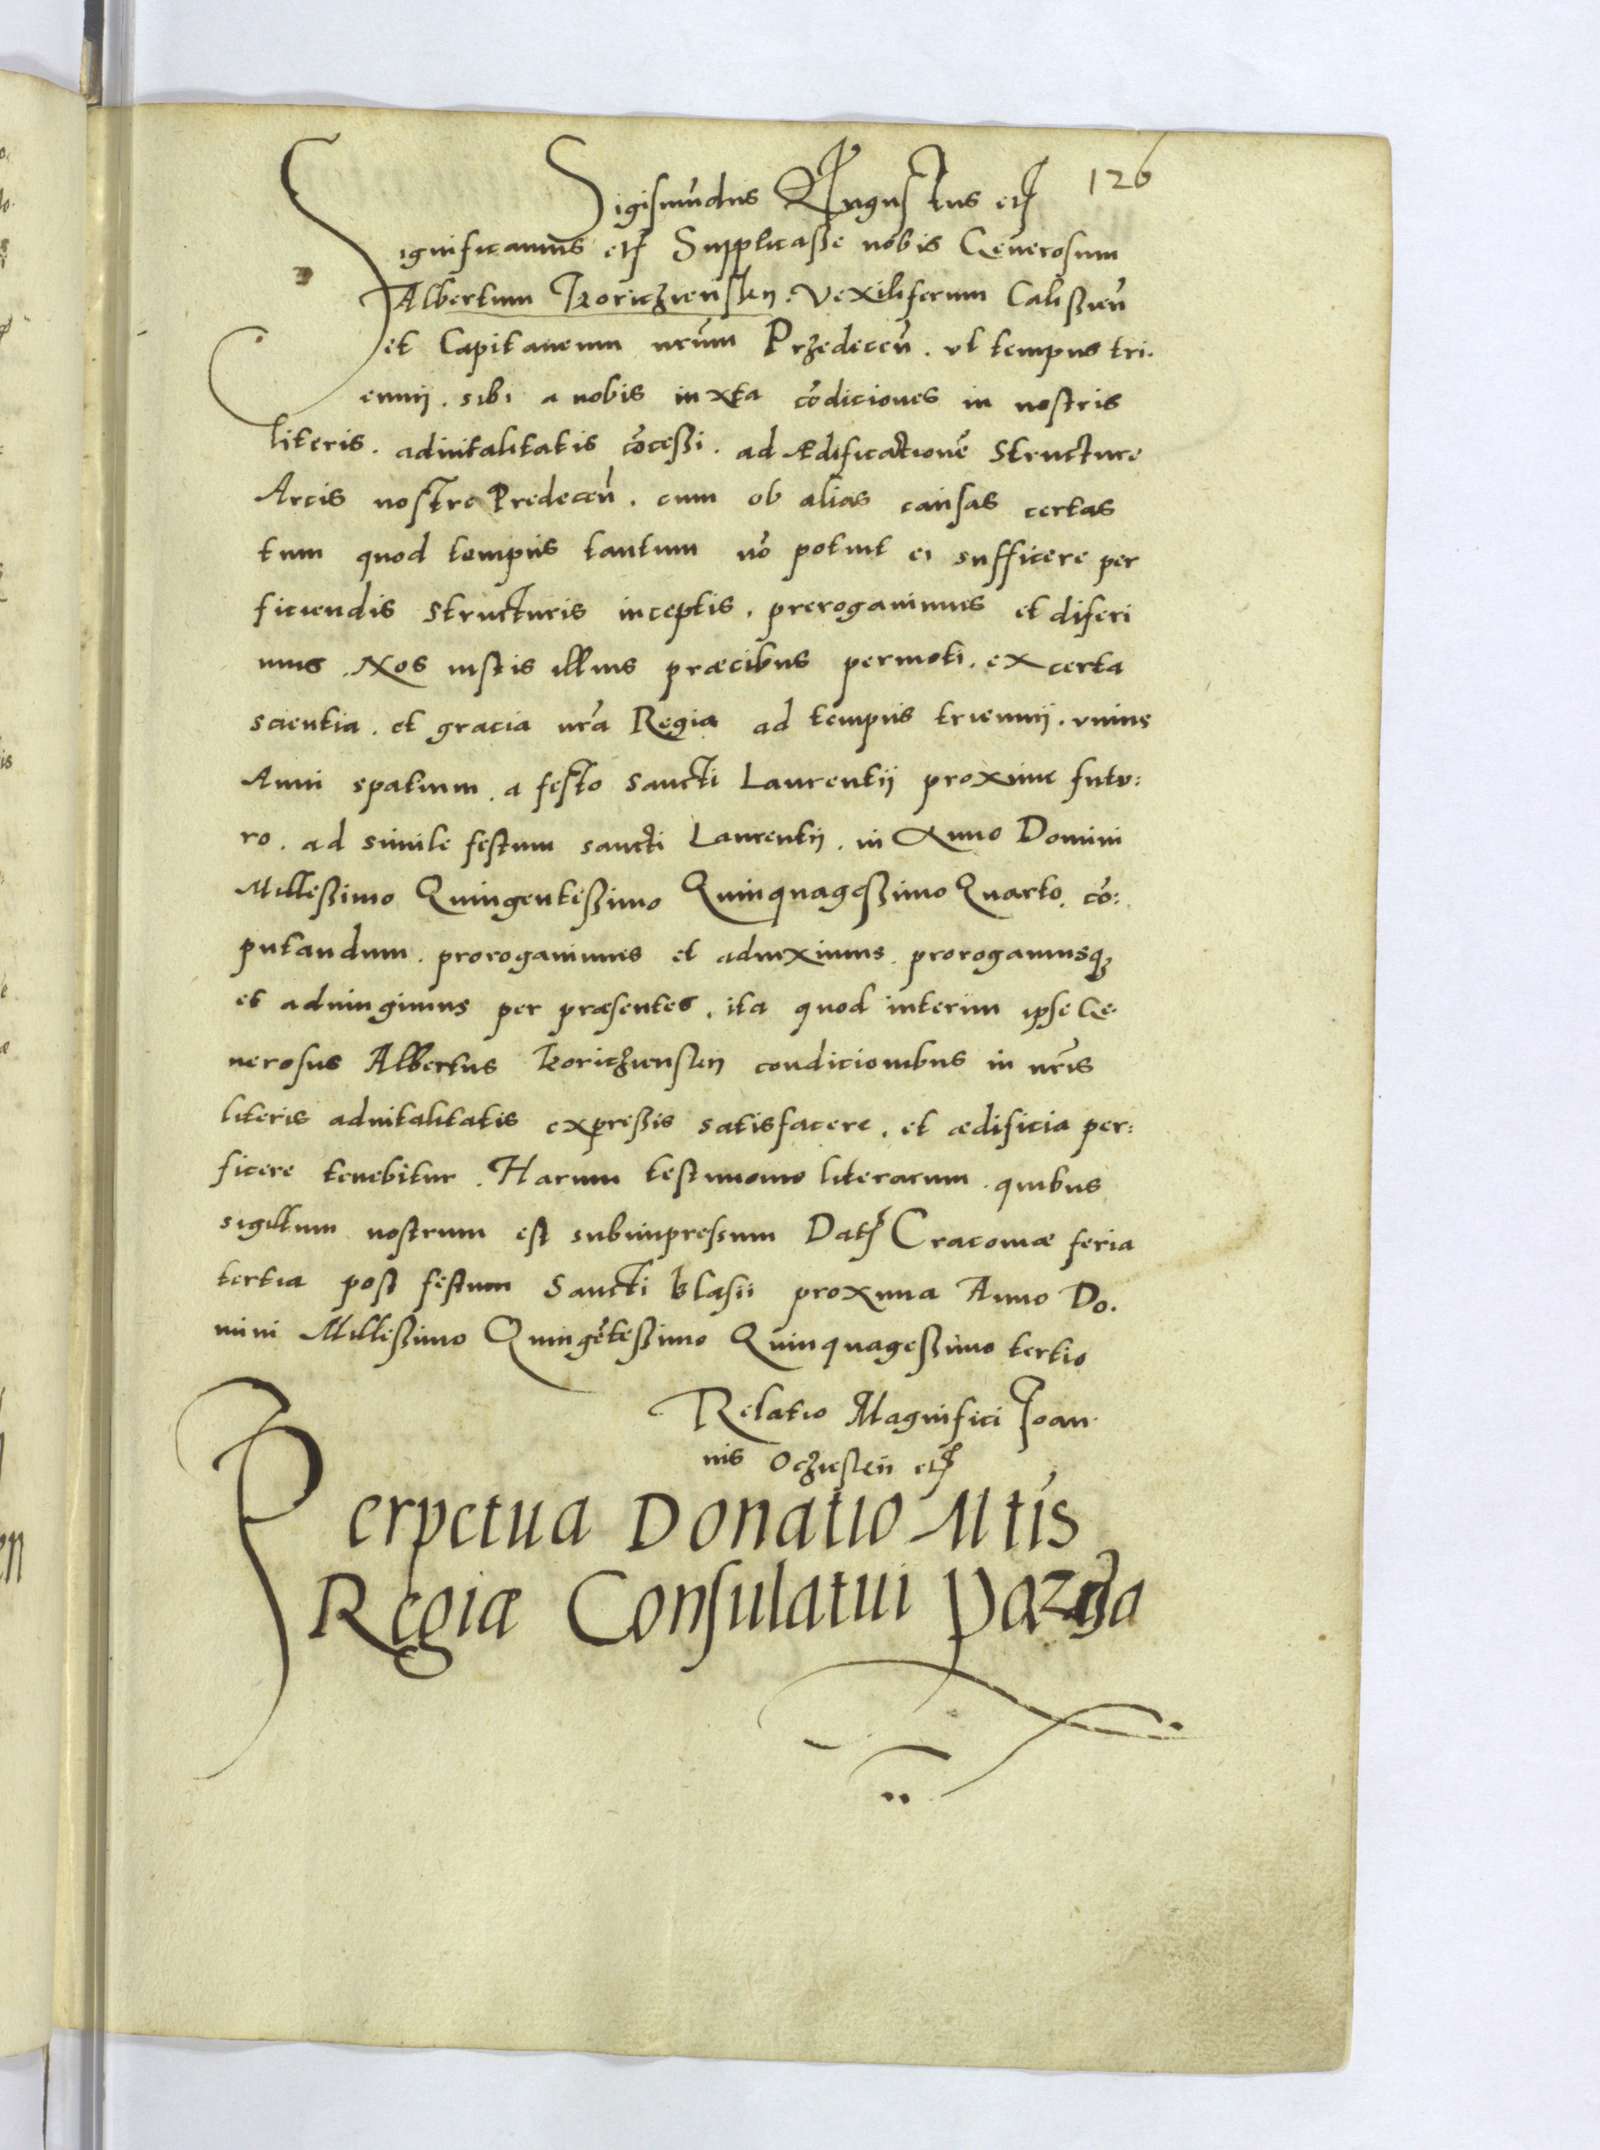 126
Sigismūdus Augustus etc
Significamus etc Supplicasse nobis Generosum
Albertum Koricziensky. Vexiliferum Calissien̄
et Capitaneum nr̄um Przedecen̄. ut tempus tri.
ennij. sibi a nobis iuxta cōdiciones in nostris
literis. advitalitatis cōcessi. ad Ædificationē Structure
Arcis nostre Predecen̄. cum ob alias causas certas
tum quod tempus tantum nō potuit ei sufficere per
ficiendis structuris inceptis. prerogavimus et diferi
mus. Nos iustis illius præcibus permoti. ex certa
scientia. et gracia nr̄a Regia ad tempus triennij. unius
Anni spatium. a festo Sancti Laurentij proxime futu:
ro. ad simile festum sancti Laurentij. in Anno Domini
Millessimo Quingentessimo Quinquagessimo Quarto. cō:
putandum. prorogavimus et adiuximus. prorogamusq;
et adiungimus per præsentes. ita quod interim ipse Ge.
nerosus Albertus Koricziensky condicionibus in nr̄is
literis advitalitatis expressis satisfacere. et ædificia per:
ficere tenebitur. Harum testimonio literarum. quibus
sigillum nostrum est subimpressum Dat. Cracoviæ feria
tertia post festum Sancti Blasii proxima Anno Do.
mini Millessimo Quingētessimo Quinquagessimo tertio
Relatio Magnifici Joan.
nis Ocziesky etc
Perpetua Donatio Mtis
Regiæ Consulatui